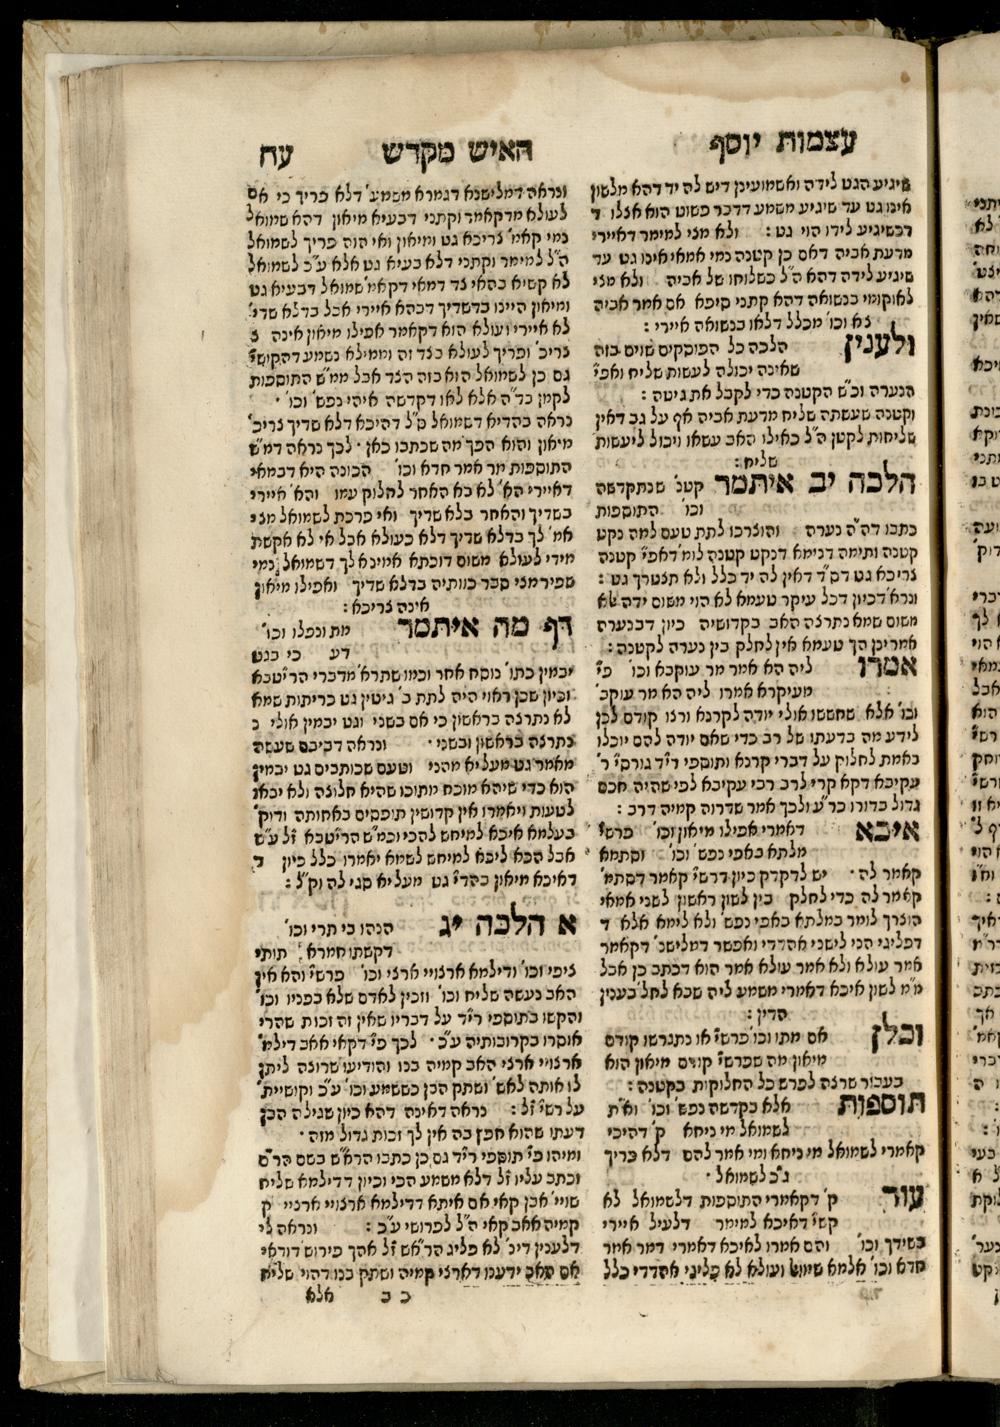 עצמות יוסף
האיש מקדש
עח
שיגיע הגט לידה ואשמועינן דיש לה יד דהא מלשון
אינו גט עד שיגיע משמע דדבר פשוט הוא אצלו ד
דכשיגיע לידו הוי גט : ולא מצי למימר דאיירי
מדעת אביה דאם כן קטנה נמי אמאי אינו גט עד
שיגיע לידה דהא ה״ל כשלוחו של אביה ולא מצי
לאוקומי בנשואה דהא קתני סיפא אם אמר אביה
צא וכו׳ מכלל דלאו בנשואה איירי :
ולענין הלכה כל הפוסקים שוים בזה
שאינה יכולה לעשות שליח ואפי׳
הנערה וכ״ש הקטנה כדי לקבל את גיטה :
וקטנה שעשתה שליח מדעת אביה אף על גב דאין
שליחות לקטן ה״ל כאילו האב עשאו ויכול ליעשות
שליח :
הלכה יב איתמר קטנ׳ שנתקדשה
וכו׳ התוספות
כתבו דה״ה נערה והוצרכו לתת טעם למה נקט
קטנה ותימה דנימא דנקט קטנה לומ׳ דאפי׳ קטנה
צריכא גט דס״ד דאין לה יד כלל ולא תצטרך גט :
ונרא׳ דכיון דכל עיקר טעמא לא הוי משום ידה שלא
משום שמא נתרצה האב בקדושיה כיון דבנערה
אמרינן הך טעמא אין לחלק בין נערה לקטנה :
אמרו ליה הא אמר מר עוקבא וכו׳ פי׳
מעיקרא אמרו ליה הא מר עוקב׳
וכו׳ אלא שחששו אולי יודה לקרנא ורצו קודם לכן
לידע מה בדעתו של רב כדי שאם יודה להם יוכלו
באמת לחלוק על דברי קרנא ותוספי רי״ד גורסי׳ ר׳
עקיבא דקא קרי לרב רבי עקיבא לפי שהיה חכם
גדול בדורו כר״ע ולכך אמר שדרוה קמיה דרב :
איכא דאמרי אפילו מיאון וכו׳ פרש״י
מלתא באפי נפש׳ וכו׳ וסתמא
קאמר לה יש לדקדק כיון דרש״י קאמר דסתמ׳
קאמר לה כדי לחלק בין לשון ראשון לשני אמאי
הוצרך לומר במלתא באפי נפש׳ ולא לימא אלא ד
דפליגי הני לישני אהדדי ואפשר דמלישנ׳ דקאמר
אמר עולא ולא אמר עולא אמר הוא דכתב כן אבל
מ״מ לשון איכא דאמרי משמע ליה שבא לחל׳ בענין
הדין :
וכלן אם מתו וכו׳ פרש״י או נתגרשו קודם
מיאון מה שפרש״י קודם מיאון הוא
בעבור שרצה לפרש כל החלוקות בקטנה :
תוספות אלא בקדשה נפש׳ וכו׳ וא״ת
לשמואל מי ניחא ק׳ דהיכי
קאמרי לשמואל מי ניחא ומי אמר להם דלא פריך
ג״כ לשמואל ׳
עוד ק׳ דקאמרי התוספות דלשמואל לא
קשי׳ דאיכא למימר דלעיל איירי
בשידך וכו׳ והם אמרו לאיכא דאמרי דמר אמר
חדא וכו׳ אלמא שמואל ועולא לא פליגי אהדדי כלל
ונראה דמלישנא דגמרא משמע׳ דלא פריך כי אם
לעולא מדקאמר וקתני דבעיא מיאון דהא שמואל
נמי קאמ׳ צריכא גט ומיאון ואי הוה פריך לשמואל
ה״ל למימר וקתני דלא בעיא גט אלא ע״כ לשמואל
לא קשיא בהאי צד דמאי דקאמ׳ שמואל דבעיא גט
ומיאון היינו בדשדיך דבהא איירי אבל בדלא שדי׳
לא איירי ועולא הוא דקאמר אפילו מיאון אינה צ
צריכ׳ ופריך לעולא בצד זה וממילא נשמע דהקושי׳
גם כן לשמואל הוא בזה הצד אבל ממ״ש התוספות
לקמן בד״ה אלא לאו דקדשה איהי נפש׳ וכו׳ ׳
נראה בהדיא דשמואל ס״ל דהיכא דלא שדיך צריכ׳
מיאון והוא הפך מה שכתבו כאן ׳ לכך נראה דמ״ש
התוספות מר אמר חדא וכו׳ הכונה היא דבמאי
דאיירי הא׳ לא בא האחר לחלוק עמו והא׳ איירי
בשדיך והאחר בלא שדיך ואי פרכת לשמואל מצי
אמ׳ לך בדלא שדיך דלא כעולא אבל אי לא אקשת
מידי לעולא משום דוכתא אמינא לך דשמואל נמי
שפיר מצי סבר כוותיה בדלא שדיך ואפילו מיאון
אינה צריכא :
דף מה איתמר מת ונפלו וכו׳
דע כי בגט
יבמין כתו׳ נוסח אחר וכמו שתרא׳ מדברי הריטב״א
וכיון שכן ראוי היה לתת ב׳ גיטין גט כריתות שמא
לא נתרצה בראשון כי אם בשני וגט יבמין אולי נ
נתרצה בראשון ובשני ׳ ונראה דביבם שעשה
מאמר גט מעליא מהני וטעם שכותבים גט יבמין
הוא כדי שיהא מוכח מתוכו שהיא חלוצה ולא יבאו
לטעות ויאמרו אין קדושין תופסים באחותה ודוק׳
בעלמא איכא למיחש להכי וכמ״ש הריטב״א ז״ל ע״ש
אבל הכא ליכא למיחש לשמא יאמרו כלל כיון ד
דאיכא מיאון בהדי׳ גט מעליא סגי לה וק״ל :
א הלכה יג הנהו בי תרי וכו׳
דקשתו חמרא תותי
ציפי וכו׳ ודילמא ארצויי ארצי וכו׳ פרש״י והא אין
האב נעשה שליח וכו׳ וזכין לאדם שלא בפניו וכו׳
והקשו בתוספי רי״ד על דבריו שאין זה זכות שהרי
אוסרו בקרובותיה ע״כ ׳ לכך פי׳ דקאי אאב דילמ׳
ארצויי ארצי האב קמיה בנו והודיעו שרוצה ליתן
לו אותה לאש׳ ושתק הבן כששמע וכו׳ ע״כ וקושיית׳
על רש״י ז״ל : נראה דאינה דהא כיון שגילה הבן
דעתו שהוא חפץ בה אין לך זכות גדול מזה ׳
ומיהו פי׳ תוספי רי״ד גם כן כתבו הרא״ש בשם הר״ם
וכתב עליו ז״ל דלא משמע הכי וכיון דדילמא שליח
שוי׳ אבן קאי אם איתא דדילמא ארצויי ארציי ק
קמיה אאב קאי ה״ל לפרושי ע״כ : ונראה לי
דלענין דינ׳ לא פליג הרא״ש ז״ל אהך פירוש דודאי
אם האב ידענו דארצי קמיה ושתק בנו דהוי שליח
כ ב
אלא